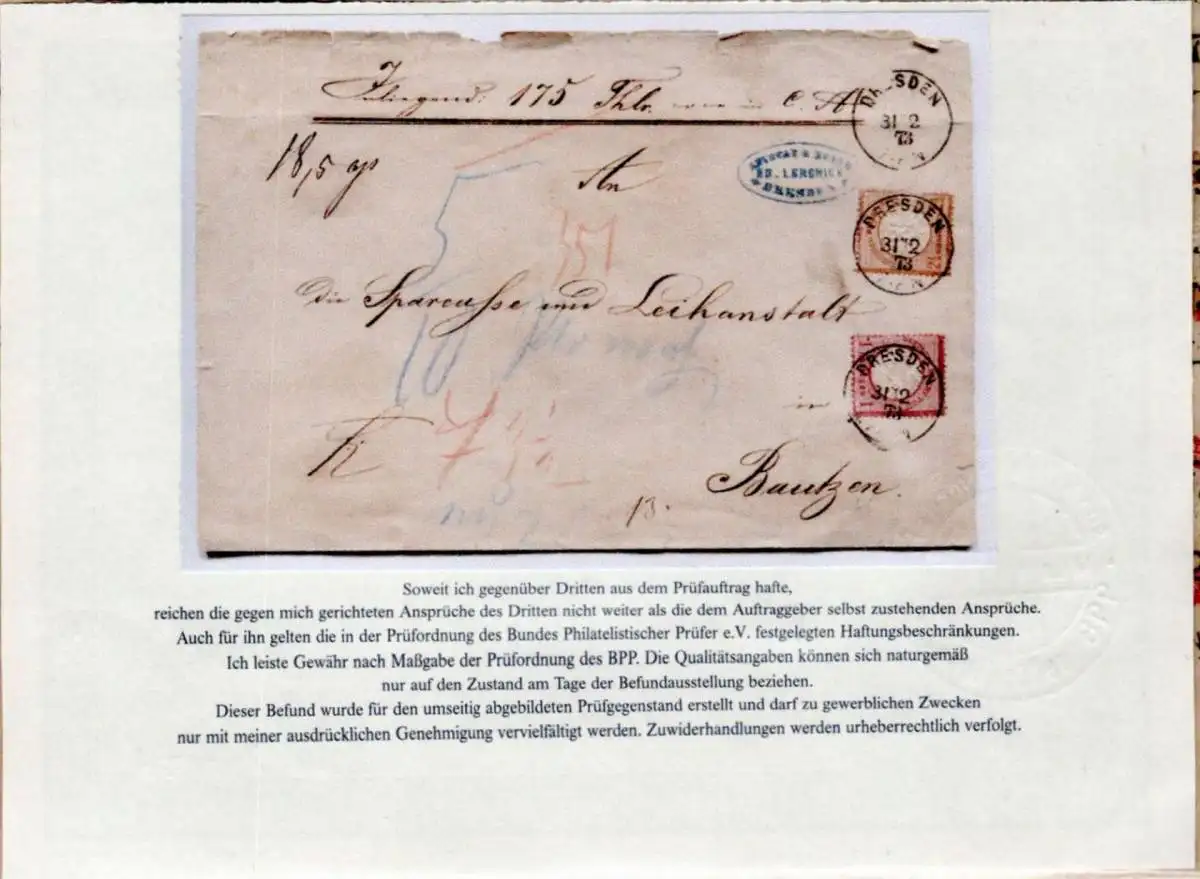 Inliegend: 175 Thlr. in C. A.
DRESDEN
31 12
73
18,5 gr
An
ADVOCAT & NOTAR
ED.
DRESDEN
DRESDEN
31 12
73
351
5
die Sparcasse und Leihanstalt
10
DRESDEN
31 12
73
1
in
Bautzen.
13.
Soweit ich gegenüber Dritten aus dem Prüfauftrag hafte,
reichen die gegen mich gerichteten Ansprüche des Dritten nicht weiter als die dem Auftraggeber selbst zustehenden Ansprüche.
Auch für ihn gelten die in der Prüfordnung des Bundes Philatelistischer Prüfer e.V. festgelegten Haftungsbeschränkungen.
Ich leiste Gewähr nach Maßgabe der Prüfordnung des BPP. Die Qualitätsangaben können sich naturgemäß
nur auf den Zustand am Tage der Befundausstellung beziehen.
Dieser Befund wurde für den umseitig abgebildeten Prüfgegenstand erstellt und darf zu gewerblichen Zwecken
nur mit meiner ausdrücklichen Genehmigung vervielfältigt werden. Zuwiderhandlungen werden urheberrechtlich verfolgt.